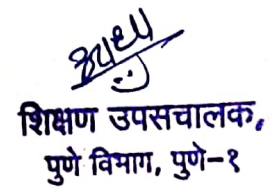 शिक्षण उपसचालक,
पुणे विभाग, पुणे-१